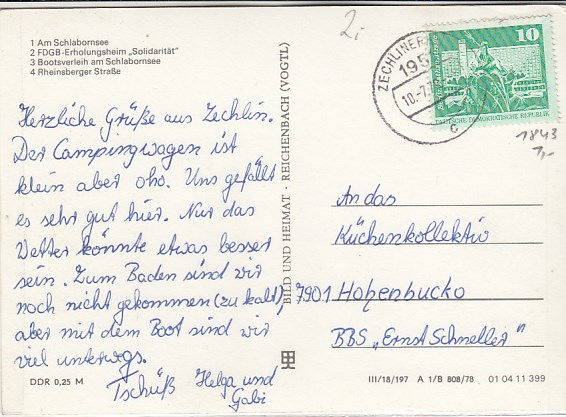 1 Am Schlabornsee
2 FDGB-Erholungsheim „Solidarität"
3 Bootsverleih am Schlabornsee
4 Rheinsberger Straße
Herzliche Grüße aus Zechlin.
Der Campingwagen ist
klein aber oho. Uns gefällt
es sehr gut hier. Nur das
Wetter könnte etwas besser
sein. Zum Baden sind wir
noch nicht gekommen (zu kalt)
aber mit dem Boot sind wir
viel unterwegs.
Tschüß Helga und
Gabi
DDR 0,25 M
BILD UND HEIMAT · REICHENBACH (VOGTL)
2,-
ZECHLINER
195
10.-7.7
c
10
DEUTSCHE DEMOKRATISCHE REPUBLIK
1843
1,-
An das
Küchenkollektiv
7901 Hohenbucko
BBS „Ernst Schneller"
III/18/197 A 1/B 808/78 01 04 11 399